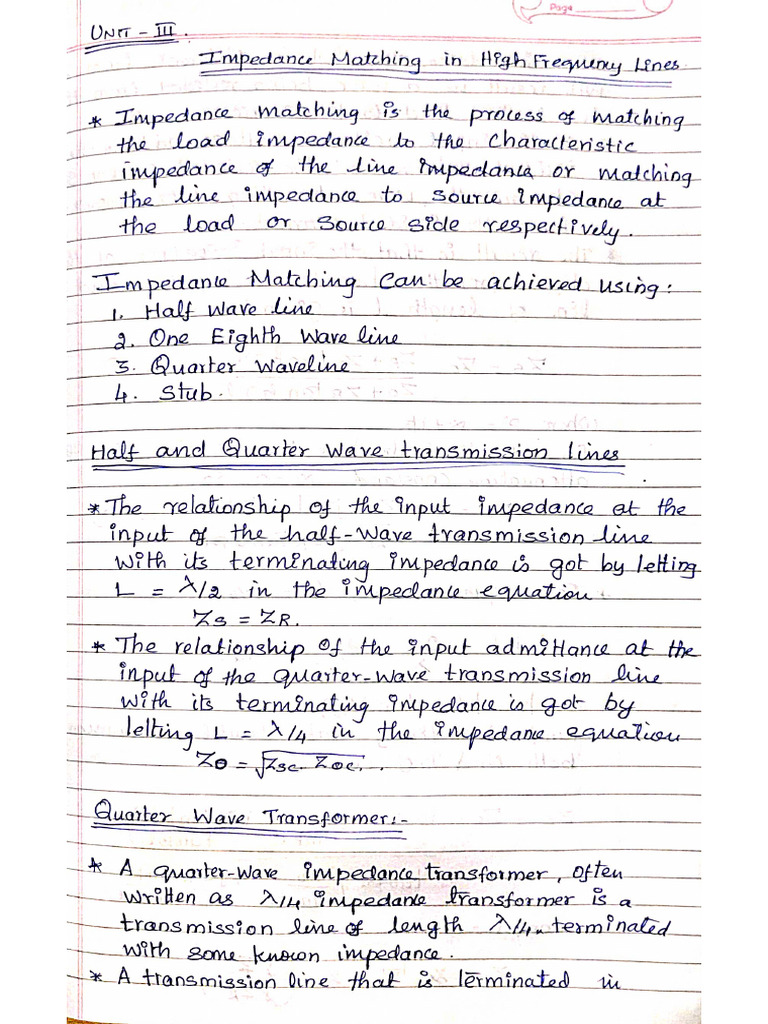 Page
UNIT - III.
Impedance Matching in High Frequency Lines
* Impedance matching is the process of matching
the load impedance to the characteristic
impedance of the line impedance or matching
the line impedance to source impedance at
the load or source side respectively.
Impedance Matching can be achieved using:
1. Half wave line
2. One Eighth Wave line
3. Quarter waveline
4. Stub.
Half and Quarter Wave transmission lines
* The relationship of the input impedance at the
input of the half-wave transmission line
with its terminating impedance is got by letting
L = λ/2 in the impedance equation.
Zs = ZR.
* The relationship of the input admittance at the
input of the quarter-wave transmission line
with its terminating impedance is got by
letting L = λ/4 in the impedance equation
Z0 = √Zsc. Zoc..
Quarter Wave Transformer:-
* A quarter-wave impedance transformer, often
written as λ/4 impedance transformer is a
transmission line of length λ/4 terminated
with some known impedance.
* A transmission line that is terminated in